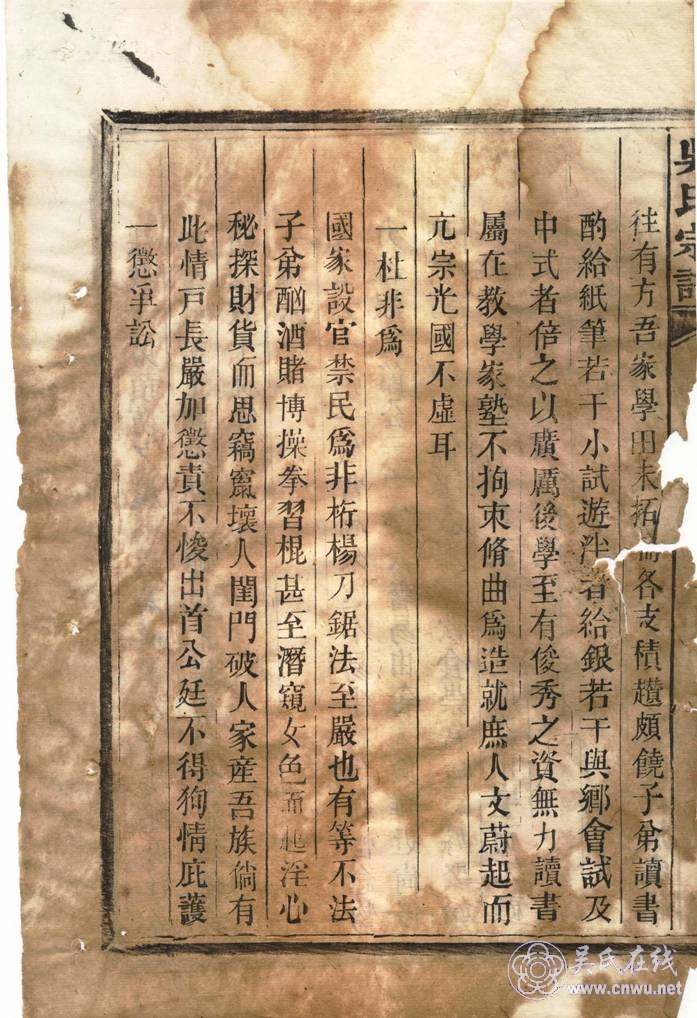 吳氏宗譜
往有方吾家學田未拓各支積趲頗饒子弟讀書
酌給紙筆若干小試遊泮者給銀若干與鄉會試及
中式者倍之以廣厲後學至有俊秀之資無力讀書
屬在教學家塾不拘束脩曲爲造就庶人文蔚起而
亢宗光國不虛耳
一杜非爲
國家設官禁民爲非桁楊刀鋸法至嚴也有等不法
子弟酗酒賭博操拳習棍甚至潛窺女色而起淫心
秘探財貨而思竊窳壞人閨門破人家産吾族倘有
此情戸長嚴加懲責不悛出首公廷不得狥情庇護
一懲爭訟
吴氏在线
www.cnwu.net